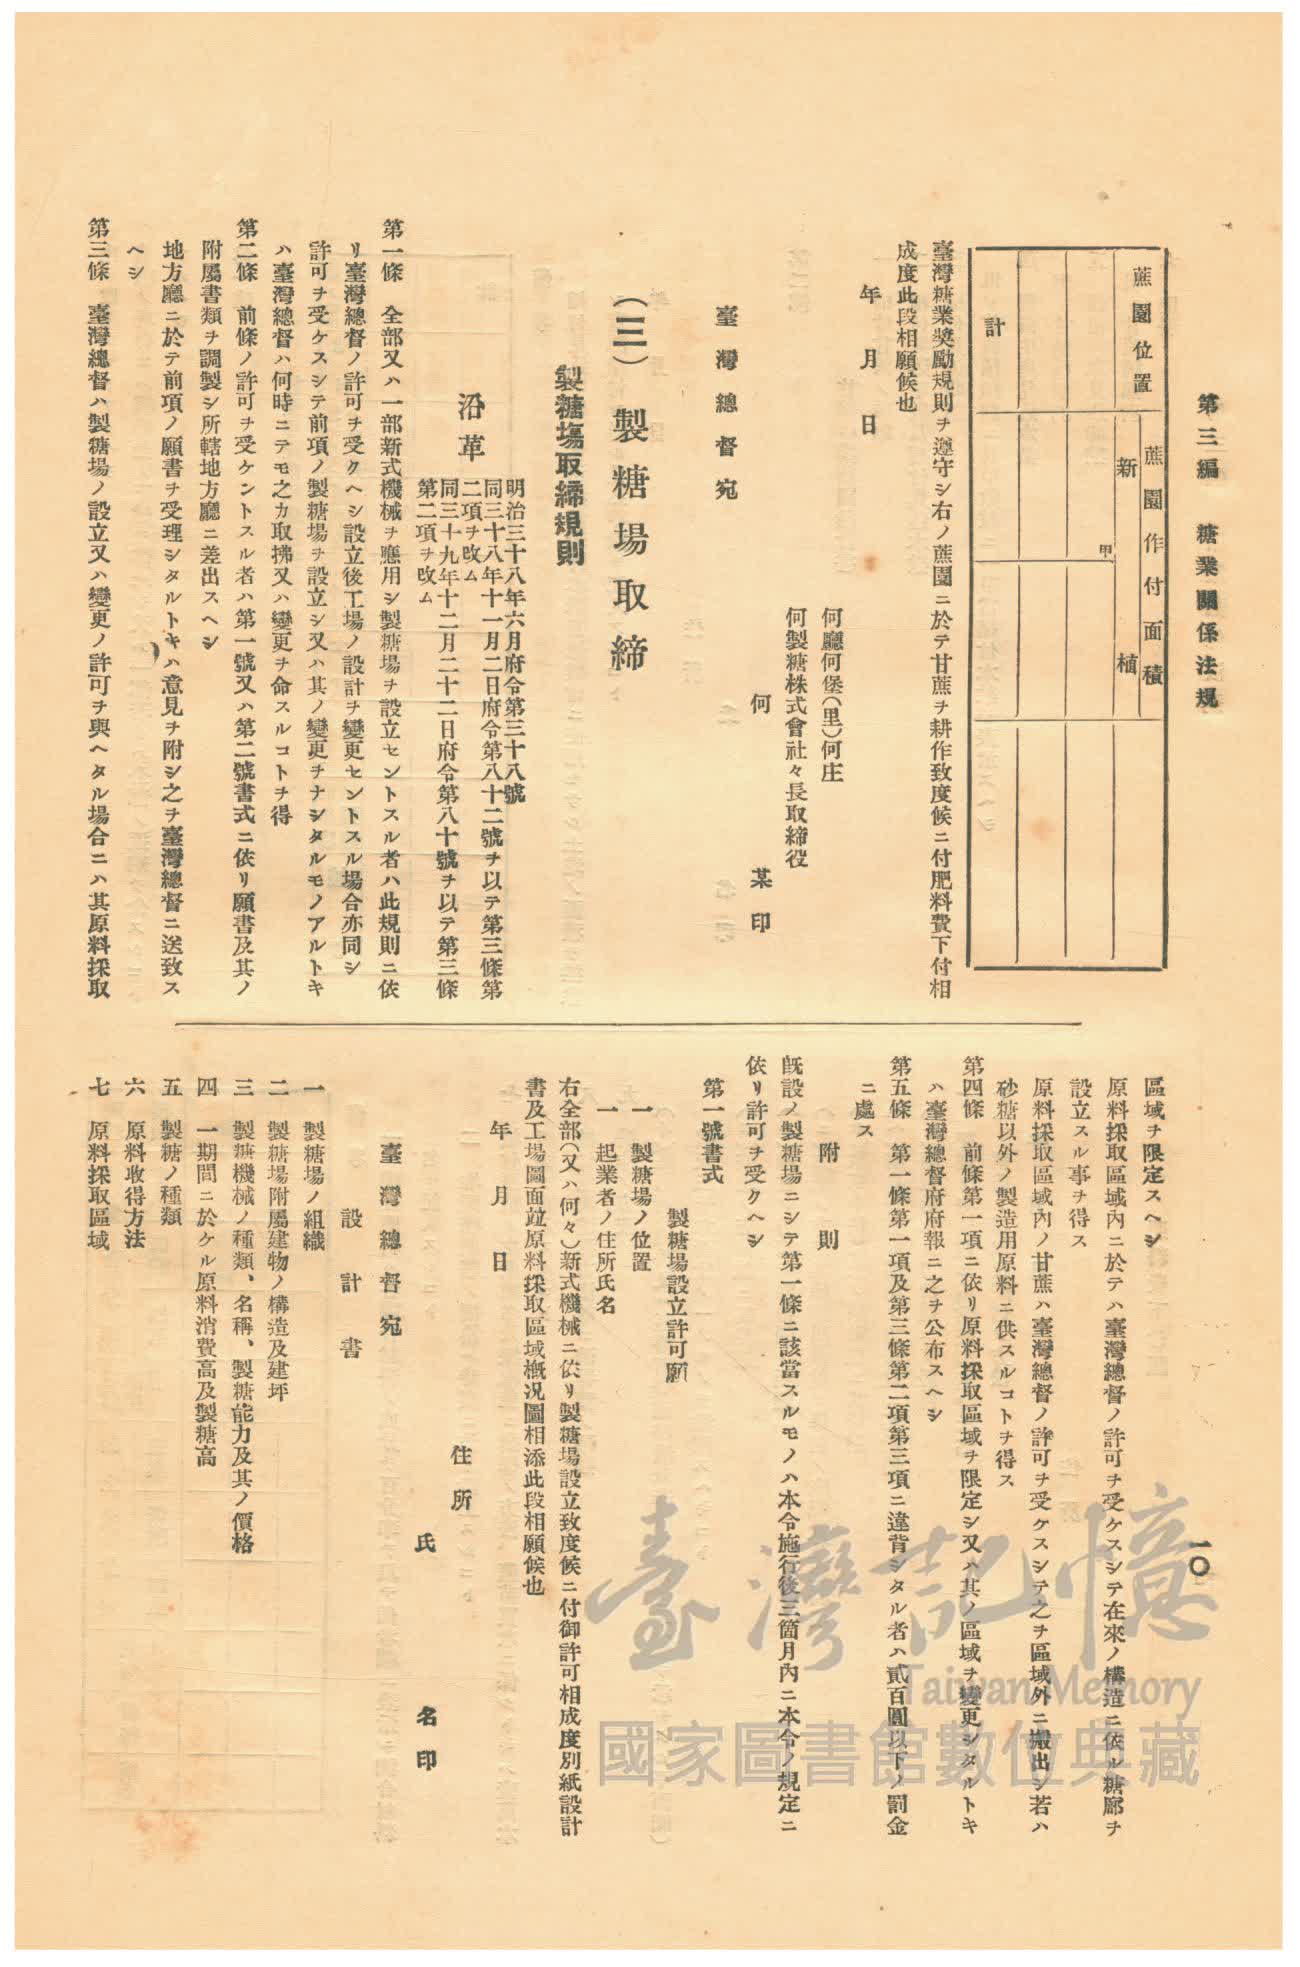 第三編　糖業關係法規
一〇
蔗園位置
蔗園作付面積
新　植
甲
計
臺灣糖業奬勵規則ヲ遵守シ右ノ蔗園ニ於テ甘蔗ヲ耕作致度候ニ付肥料費下付相
成度此段相願候也
年　月　日
何廳何堡（里）何庄
何製糖株式會社々長取締役
何　某印
臺灣總督宛
（三）製糖場取締
製糖場取締規則
沿革
明治三十八年六月府令第三十八號
同三十八年十一月二日府令第八十二號ヲ以テ第三條第
二項ヲ改ム
同三十九年十二月二十二日府令第八十號ヲ以テ第三條
第二項ヲ改ム
第一條　全部又ハ一部新式機械ヲ應用シ製糖場ヲ設立セントスル者ハ此規則ニ依
リ臺灣總督ノ許可ヲ受クヘシ設立後工場ノ設計ヲ變更セントスル場合亦同シ
許可ヲ受ケスシテ前項ノ製糖場ヲ設立シ又ハ其ノ變更ヲナシタルモノアルトキ
ハ臺灣總督ハ何時ニテモ之カ取拂又ハ變更ヲ命スルコトヲ得
第二條　前條ノ許可ヲ受ケントスル者ハ第一號又ハ第二號書式ニ依リ願書及其ノ
附屬書類ヲ調製シ所轄地方廳ニ差出スヘシ
地方廳ニ於テ前項ノ願書ヲ受理シタルトキハ意見ヲ附シ之ヲ臺灣總督ニ送致ス
ヘシ
第三條　臺灣總督ハ製糖場ノ設立又ハ變更ノ許可ヲ與ヘタル場合ニハ其原料採取
區域ヲ限定スヘシ
原料採取區域內ニ於テハ臺灣總督ノ許可ヲ受ケスシテ在來ノ構造ニ依ル糖廍ヲ
設立スル事ヲ得ス
原料採取區域內ノ甘蔗ハ臺灣總督ノ許可ヲ受ケスシテ之ヲ區域外ニ搬出シ若ハ
砂糖以外ノ製造用原料ニ供スルコトヲ得ス
第四條　前條第一項ニ依リ原料採取區域ヲ限定シ又ハ其ノ區域ヲ變更シタルトキ
ハ臺灣總督府府報ニ之ヲ公布スヘシ
第五條　第一條第一項及第三條第二項第三項ニ違背シタル者ハ貳百圓以下ノ罰金
ニ處ス
附　則
旣設ノ製糖場ニシテ第一條ニ該當スルモノハ本令施行後三箇月內ニ本令ノ規定ニ
依リ許可ヲ受クヘシ
第一號書式
製糖場設立許可願
一　製糖場ノ位置
一　起業者ノ住所氏名
右全部（又ハ何々）新式機械ニ依リ製糖場設立致度候ニ付御許可相成度別紙設計
書及工場圖面竝原料採取區域槪況圖相添此段相願候也
年　月　日
住所
氏　名印
臺灣總督宛
設計書
一　製糖場ノ組織
二　製糖場附屬建物ノ構造及建坪
三　製糖機械ノ種類、名稱、製糖能力及其ノ價格
四　一期間ニ於ケル原料消費高及製糖高
五　製糖ノ種類
六　原料收得方法
七　原料採取區域
臺灣記憶
Taiwan Memory
國家圖書館數位典藏